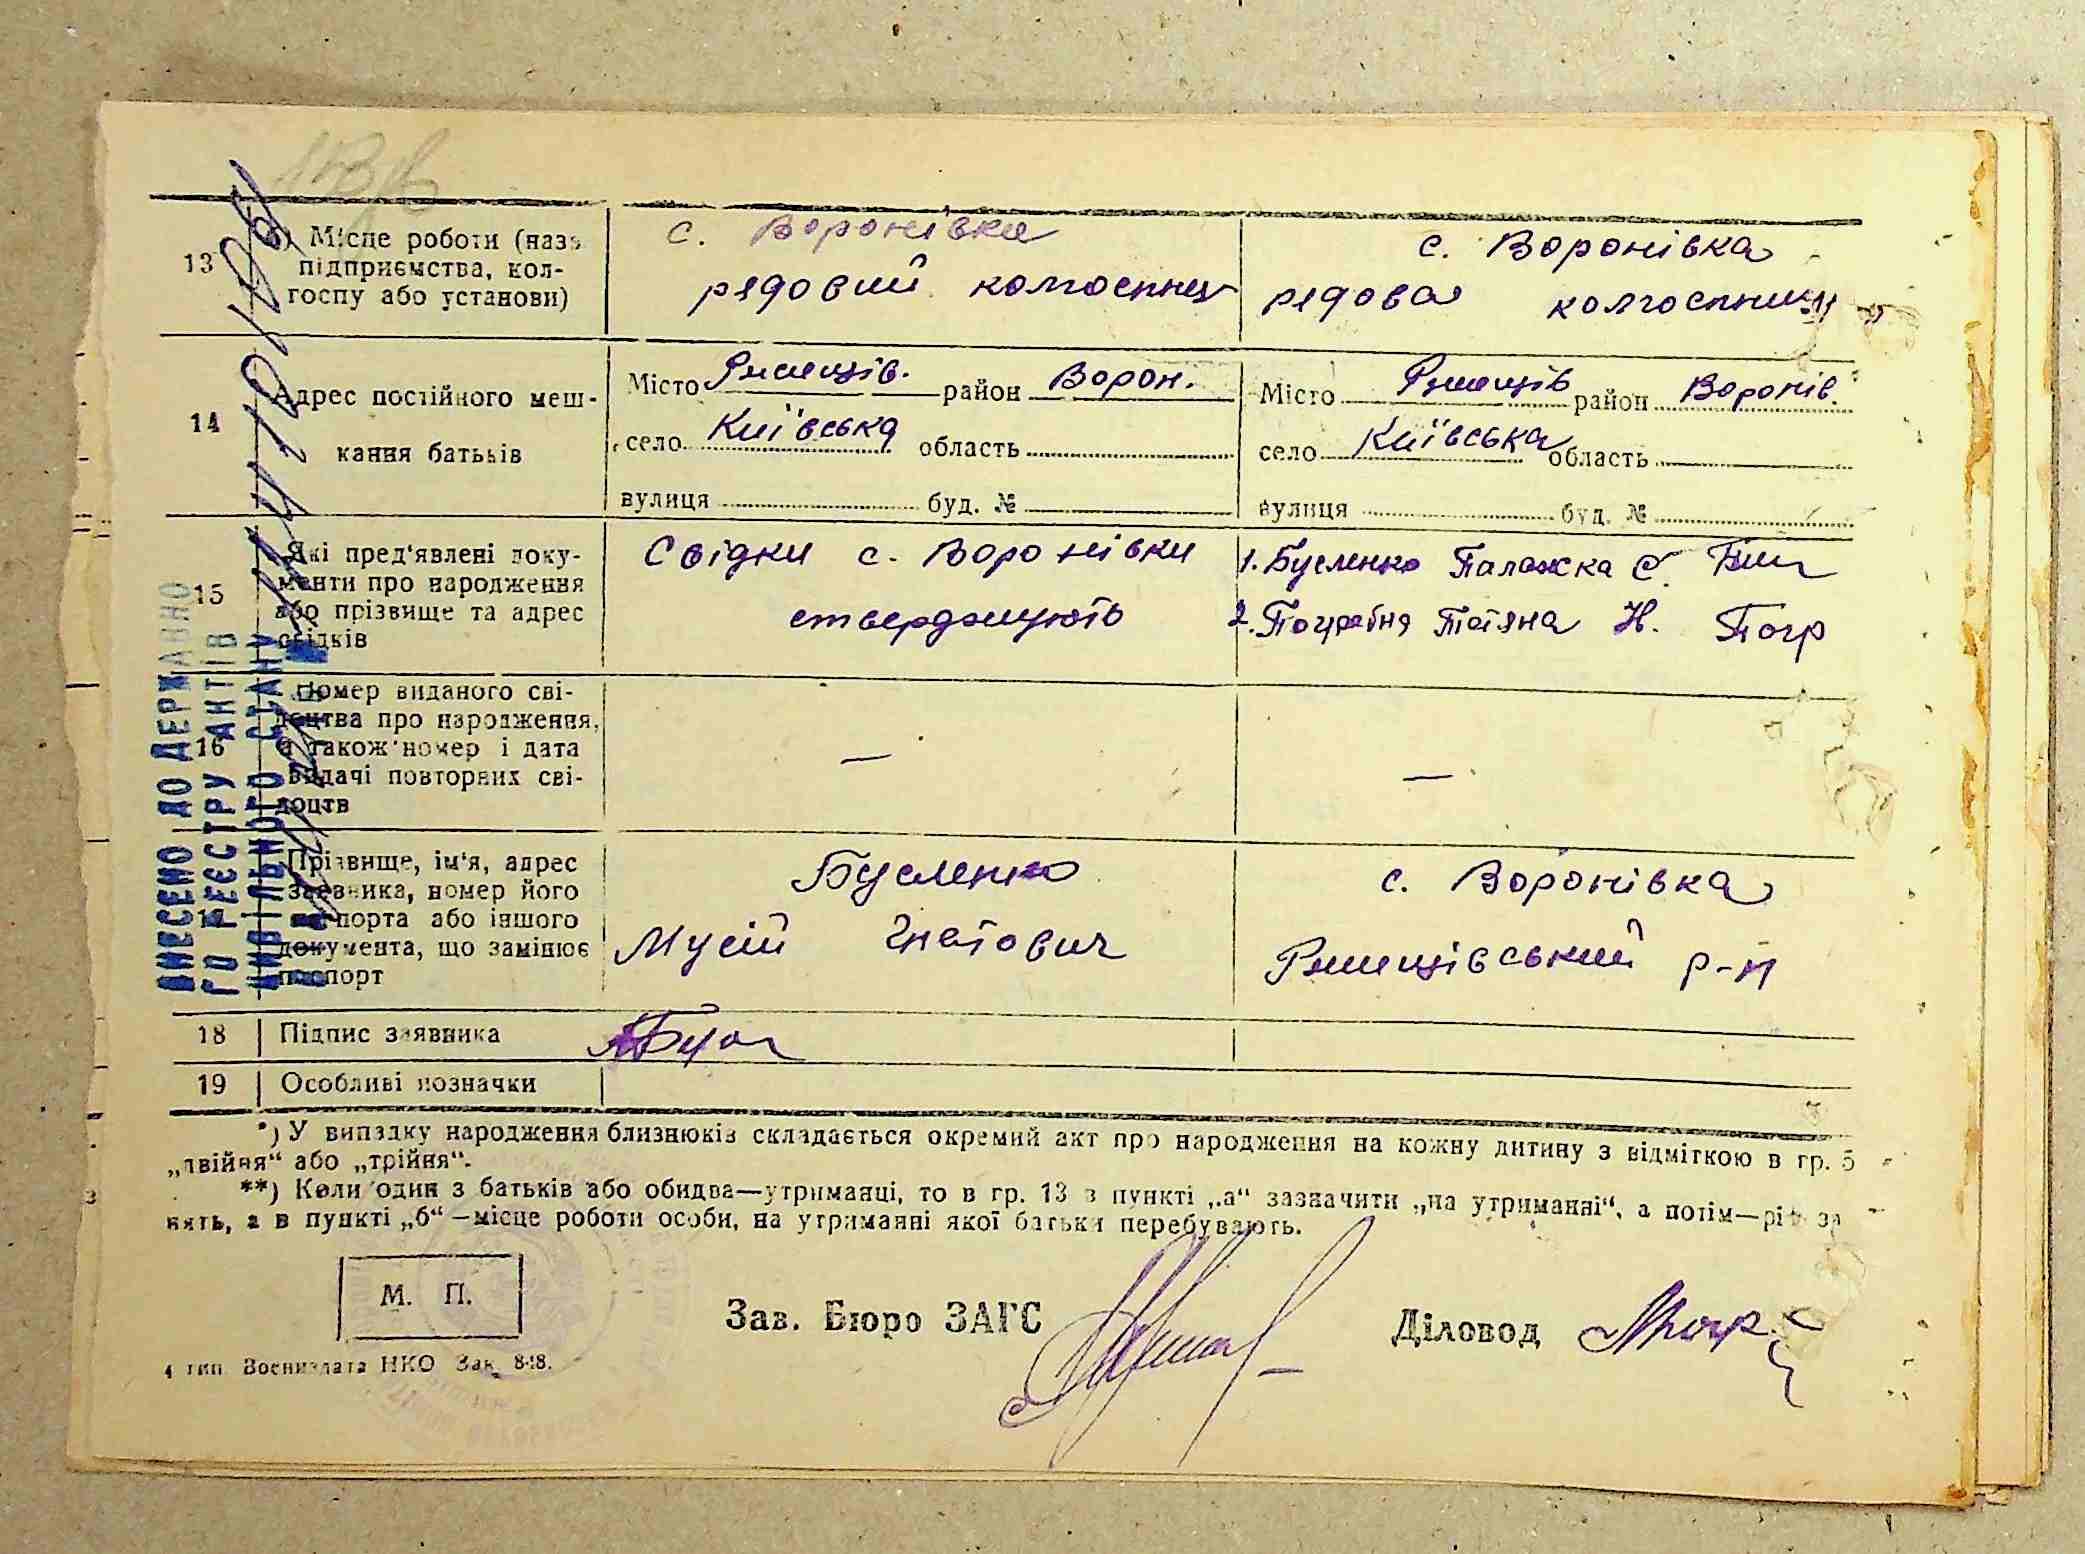 13
б) Місце роботи (назв
підприємства, кол-
госпу або установи)
с. Воронівки
рядовий колгоспнец
с. Воронівка
рядова колгоспниця
14
Адрес постійного меш-
кання батьків
Місто Ржищів. район Ворон.
село Київська область
вулиця буд. №
Місто Ржищів район Воронів.
село Київська область
вулиця буд. №
15
Які пред'явлені доку-
менти про народження
або прізвище та адрес
свідків
Свідки с. Воронівки
стверджують
1. Бусленко Палажка С.
2. Погребня Тетяна Н. Погр
16
Номер виданого сві-
доцтва про народження,
а також номер і дата
видачі повторних сві-
доцтв
—
—
17
Прізвище, ім'я, адрес
заявника, номер його
паспорта або іншого
документа, що замінює
паспорт
Бусленко
Мусій Гнатович
с. Воронівка
Ржищівський р-н
18
Підпис заявника
19
Особливі позначки
*) У випадку народження близнюків складається окремий акт про народження на кожну дитину з відміткою в гр. 5
„двійня“ або „трійня“.
**) Коли один з батьків або обидва—утриманці, то в гр. 13 в пункті „а“ зазначити „на утриманні“, а потім—рід за
нять, а в пункті „б“ —місце роботи особи, на утриманні якої батьки перебувають.
М. П.
Зав. Бюро ЗАГС
Діловод
4 тип. Воениздата НКО Зак. 848.
ВНЕСЕНО ДО ДЕРЖАВНО
ГО РЕЄСТРУ АКТІВ
ЦИВІЛЬНОГО СТАНУ